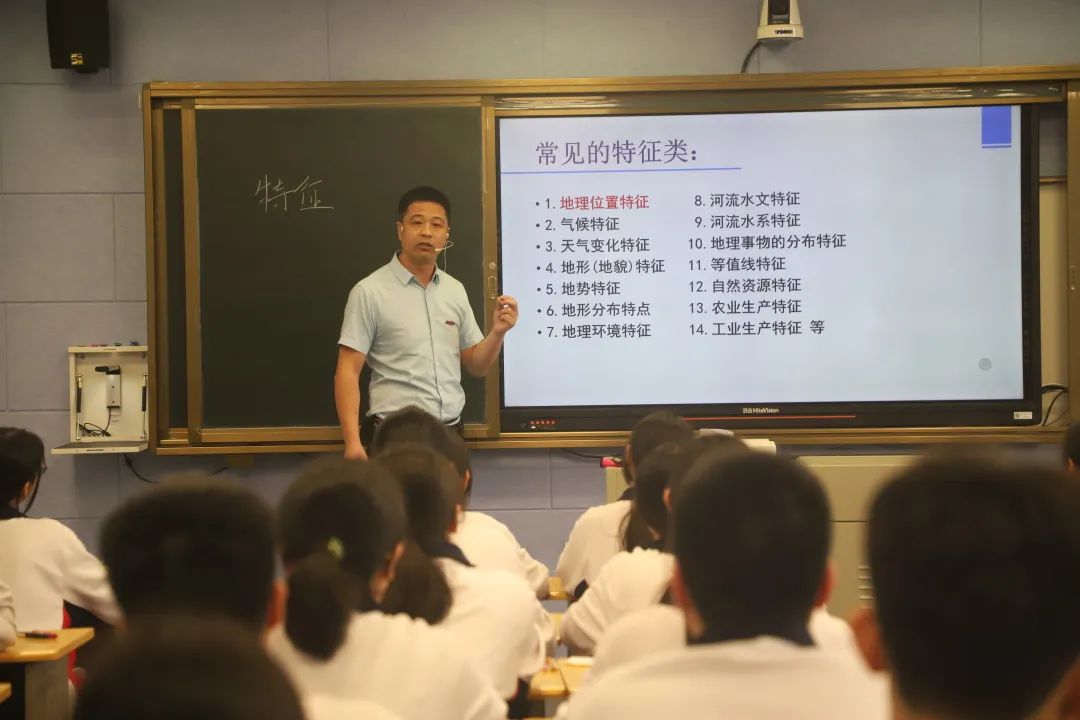 特征
常见的特征类：
• 1. 地理位置特征
• 2. 气候特征
• 3. 天气变化特征
• 4. 地形(地貌)特征
• 5. 地势特征
• 6. 地形分布特点
• 7. 地理环境特征
8. 河流水文特征
9. 河流水系特征
10. 地理事物的分布特征
11. 等值线特征
12. 自然资源特征
13. 农业生产特征
14. 工业生产特征 等
HiteVision